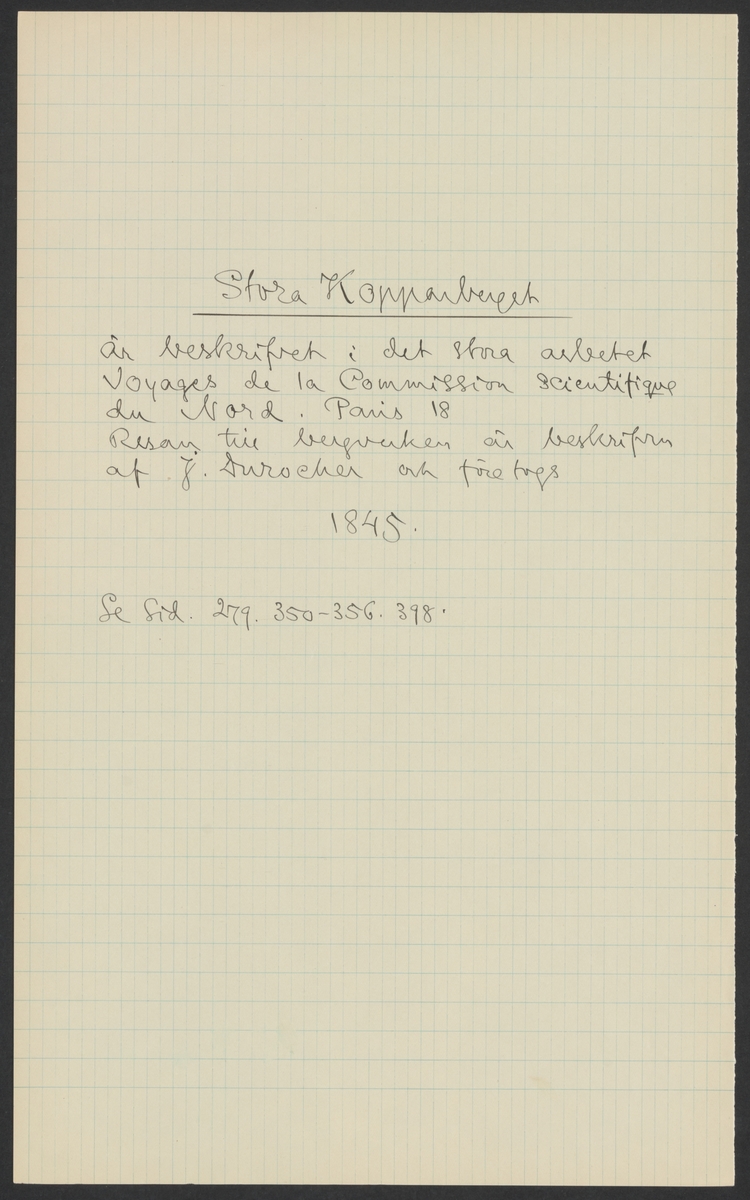 Stora Kopparberget
är beskrifvet i det stora arbetet
Voyages de la Commission scientifique
du Nord. Paris 18
Resan till bergverken är beskrifven
af J. Durocher och företogs
1845.
Se Sid. 279. 350-356. 398.